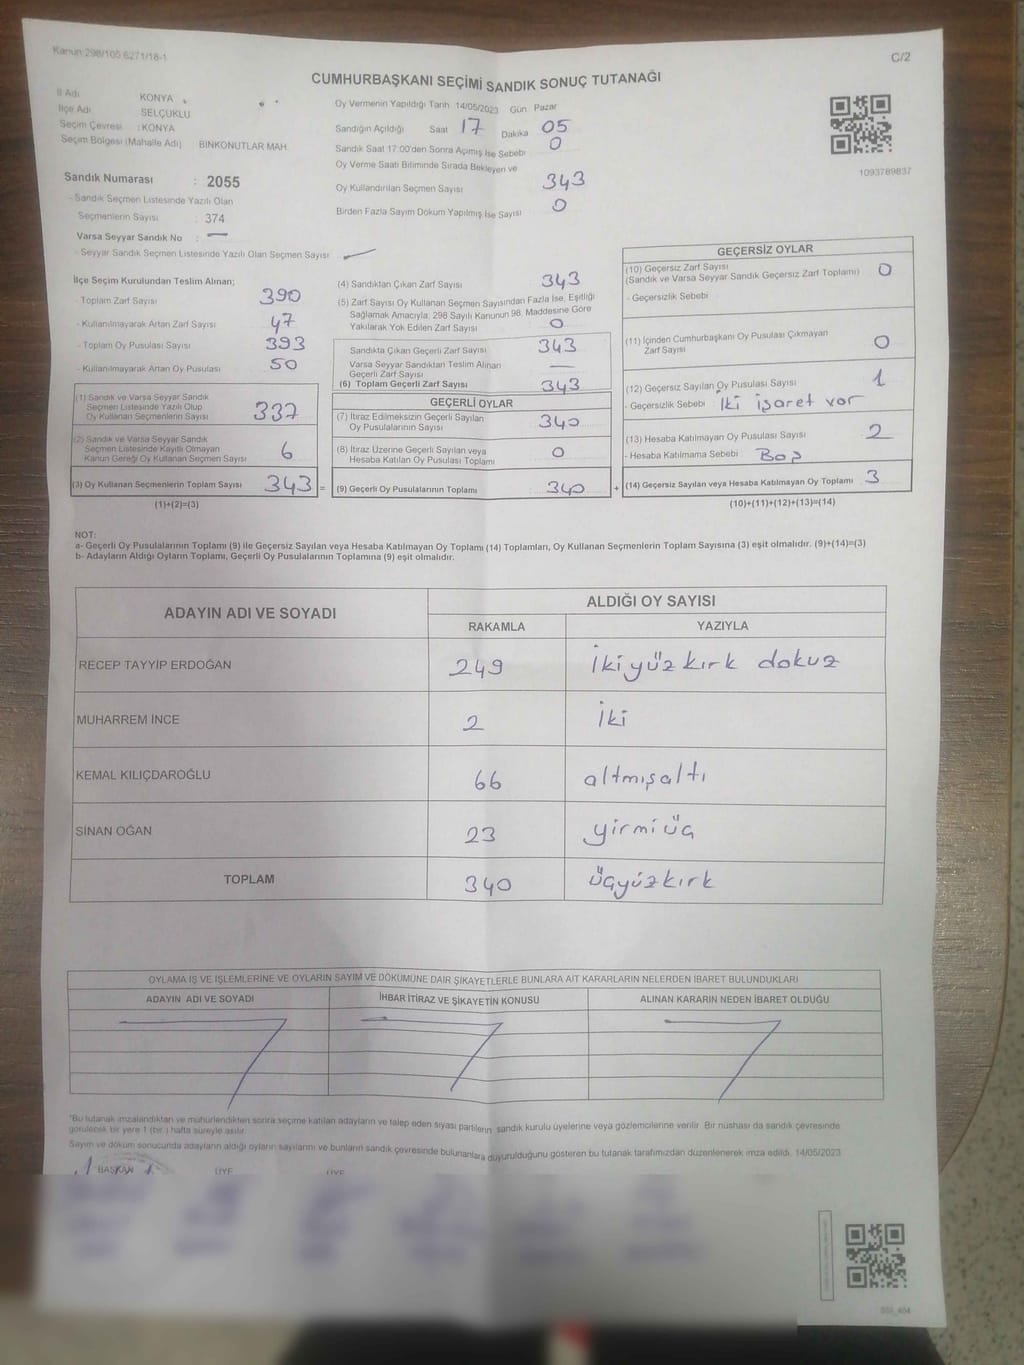 Kanun 298/105 6271/18-1
C/2
CUMHURBAŞKANI SEÇİMİ SANDIK SONUÇ TUTANAĞI
İl Adı KONYA
İlçe Adı SELÇUKLU
Seçim Çevresi : KONYA
Seçim Bölgesi (Mahalle Adı) BİNKONUTLAR MAH
Sandık Numarası : 2055
- Sandık Seçmen Listesinde Yazılı Olan
Seçmenlerin Sayısı : 374
Varsa Seyyar Sandık No : —
- Seyyar Sandık Seçmen Listesinde Yazılı Olan Seçmen Sayısı : —
Oy Vermenin Yapıldığı Tarih 14/05/2023 Gün Pazar
Sandığın Açıldığı Saat 17 Dakika 05
Sandık Saat 17:00'den Sonra Açımış İse Sebebi 0
Oy Verme Saati Bitiminde Sırada Bekleyen ve
Oy Kullandırılan Seçmen Sayısı 343
Birden Fazla Sayım Döküm Yapılmış İse Sayısı 0
1093789837
İlçe Seçim Kurulundan Teslim Alınan;
- Toplam Zarf Sayısı 390
- Kullanılmayarak Artan Zarf Sayısı 47
- Toplam Oy Pusulası Sayısı 393
- Kullanılmayarak Artan Oy Pusulası 50
(1) Sandık ve Varsa Seyyar Sandık
Seçmen Listesinde Yazılı Olup
Oy Kullanan Seçmenlerin Sayısı 337
(2) Sandık ve Varsa Seyyar Sandık
Seçmen Listesinde Kayıtlı Olmayan
Kanun Gereği Oy Kullanan Seçmen Sayısı 6
(3) Oy Kullanan Seçmenlerin Toplam Sayısı 343 =
(1)+(2)=(3)
(4) Sandıktan Çıkan Zarf Sayısı 343
(5) Zarf Sayısı Oy Kullanan Seçmen Sayısından Fazla İse, Eşitliği
Sağlamak Amacıyla; 298 Sayılı Kanunun 98. Maddesine Göre
Yakılarak Yok Edilen Zarf Sayısı 0
Sandıkta Çıkan Geçerli Zarf Sayısı 343
Varsa Seyyar Sandıktan Teslim Alınan
Geçerli Zarf Sayısı —
(6) Toplam Geçerli Zarf Sayısı 343
GEÇERLİ OYLAR
(7) İtiraz Edilmeksizin Geçerli Sayılan
Oy Pusulalarının Sayısı 340
(8) İtiraz Üzerine Geçerli Sayılan veya
Hesaba Katılan Oy Pusulası Toplamı 0
(9) Geçerli Oy Pusulalarının Toplamı : 340 +
GEÇERSİZ OYLAR
(10) Geçersiz Zarf Sayısı
(Sandık ve Varsa Seyyar Sandık Geçersiz Zarf Toplamı) 0
- Geçersizlik Sebebi
(11) İçinden Cumhurbaşkanı Oy Pusulası Çıkmayan
Zarf Sayısı 0
(12) Geçersiz Sayılan Oy Pusulası Sayısı 1
- Geçersizlik Sebebi İki işaret var
(13) Hesaba Katılmayan Oy Pusulası Sayısı 2
- Hesaba Katılmama Sebebi Boş
(14) Geçersiz Sayılan veya Hesaba Katılmayan Oy Toplamı 3
(10)+(11)+(12)+(13)=(14)
NOT:
a- Geçerli Oy Pusulalarının Toplamı (9) ile Geçersiz Sayılan veya Hesaba Katılmayan Oy Toplamı (14) Toplamları, Oy Kullanan Seçmenlerin Toplam Sayısına (3) eşit olmalıdır. (9)+(14)=(3)
b- Adayların Aldığı Oyların Toplamı, Geçerli Oy Pusulalarının Toplamına (9) eşit olmalıdır.
ADAYIN ADI VE SOYADI ALDIĞI OY SAYISI
RAKAMLA YAZIYLA
RECEP TAYYİP ERDOĞAN 249 İkiyüz kırk dokuz
MUHARREM İNCE 2 İki
KEMAL KILIÇDAROĞLU 66 altmışaltı
SİNAN OĞAN 23 yirmiüç
TOPLAM 340 üçyüzkırk
OYLAMA İŞ VE İŞLEMLERİNE VE OYLARIN SAYIM VE DÖKÜMÜNE DAİR ŞİKAYETLERLE BUNLARA AİT KARARLARIN NELERDEN İBARET BULUNDUKLARI
ADAYIN ADI VE SOYADI İHBAR İTİRAZ VE ŞİKAYETİN KONUSU ALINAN KARARIN NEDEN İBARET OLDUĞU
*Bu tutanak imzalandıktan ve mühürlendikten sonra seçime katılan adayların ve talep eden siyasi partilerin sandık kurulu üyelerine veya gözlemcilerine verilir. Bir nüshası da sandık çevresinde
görülecek bir yere 1 (bir) hafta süreyle asılır.
Sayım ve döküm sonucunda adayların aldığı oyların sayılarını ve bunların sandık çevresinde bulunanlara duyurulduğunu gösteren bu tutanak tarafımızdan düzenlenerek imza edildi. 14/05/2023
BAŞKAN ÜYE ÜYE